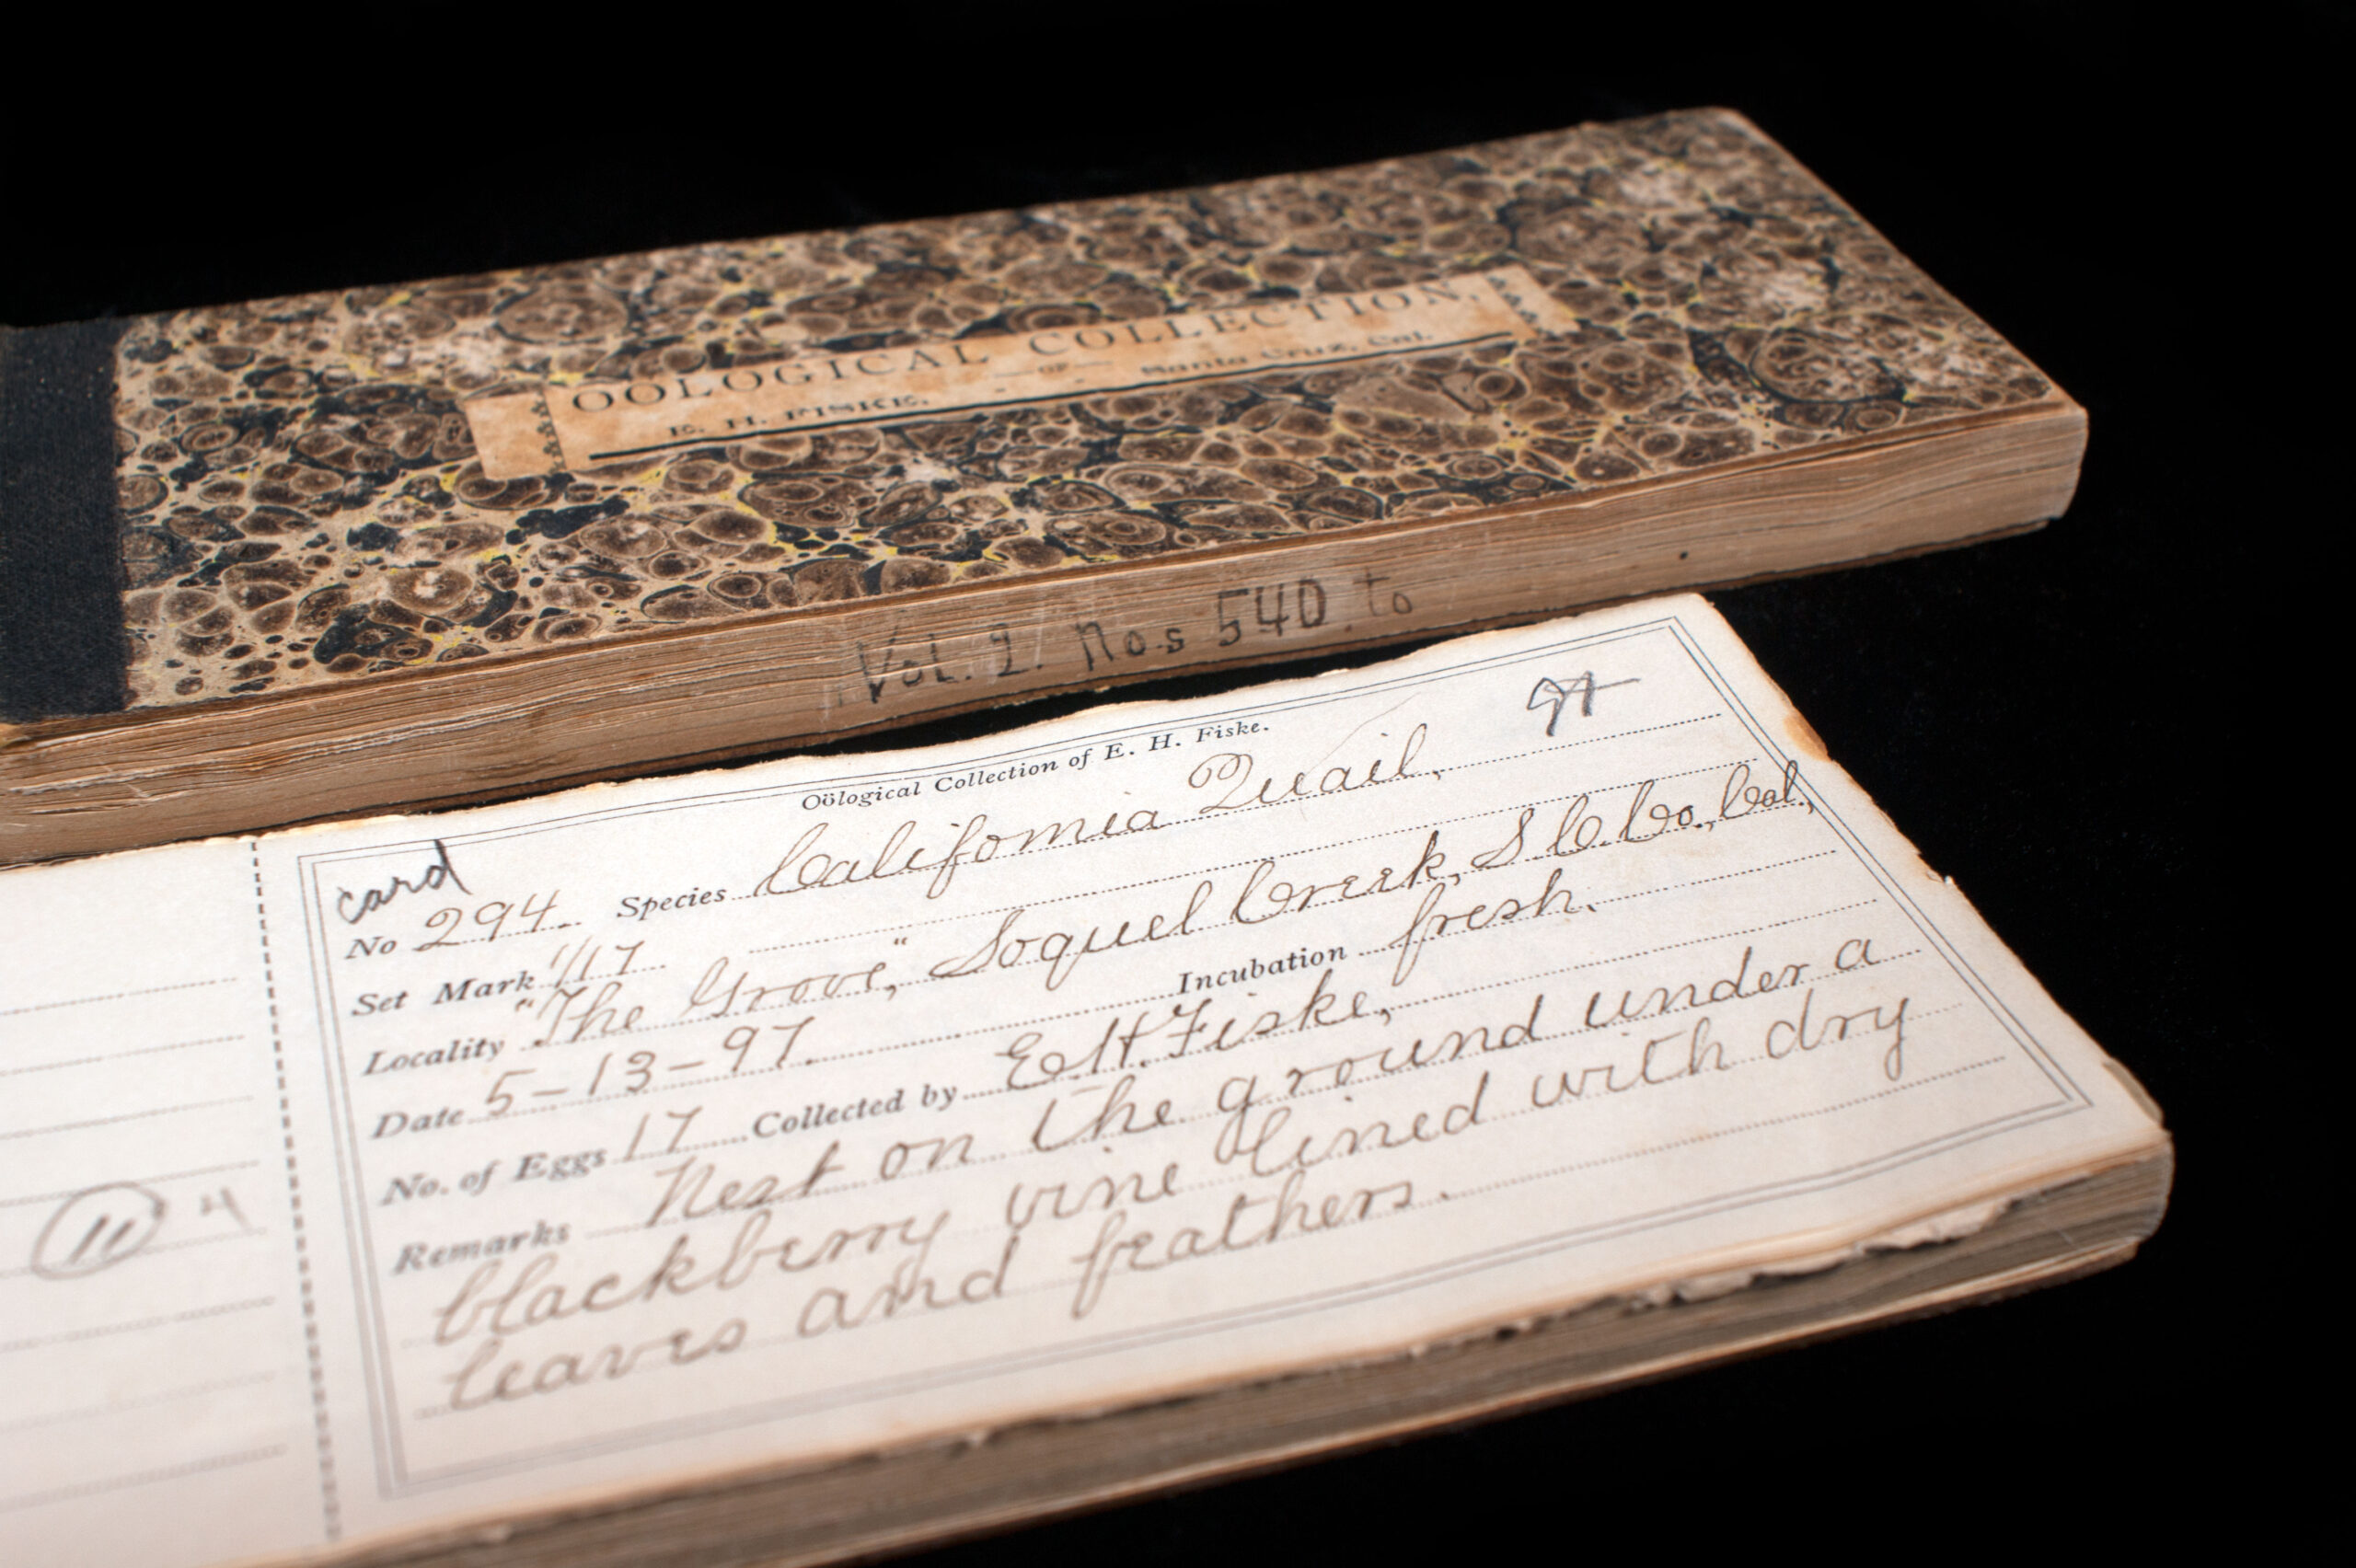 OOLOGICAL COLLECTION,
—OF—
E. H. FISKE, - - Santa Cruz, Cal.
Vol. 2. Nos 540 to
Oölogical Collection of E. H. Fiske.
card
No 294 Species California Quail,
Set Mark 1/17
Locality "The Grove," Soquel Creek, S C. Co., Cal,
Date 5-13-97. Incubation fresh.
No. of Eggs 17 Collected by E. H. Fiske,
Remarks Nest on the ground under a
blackberry vine lined with dry
leaves and feathers.
11